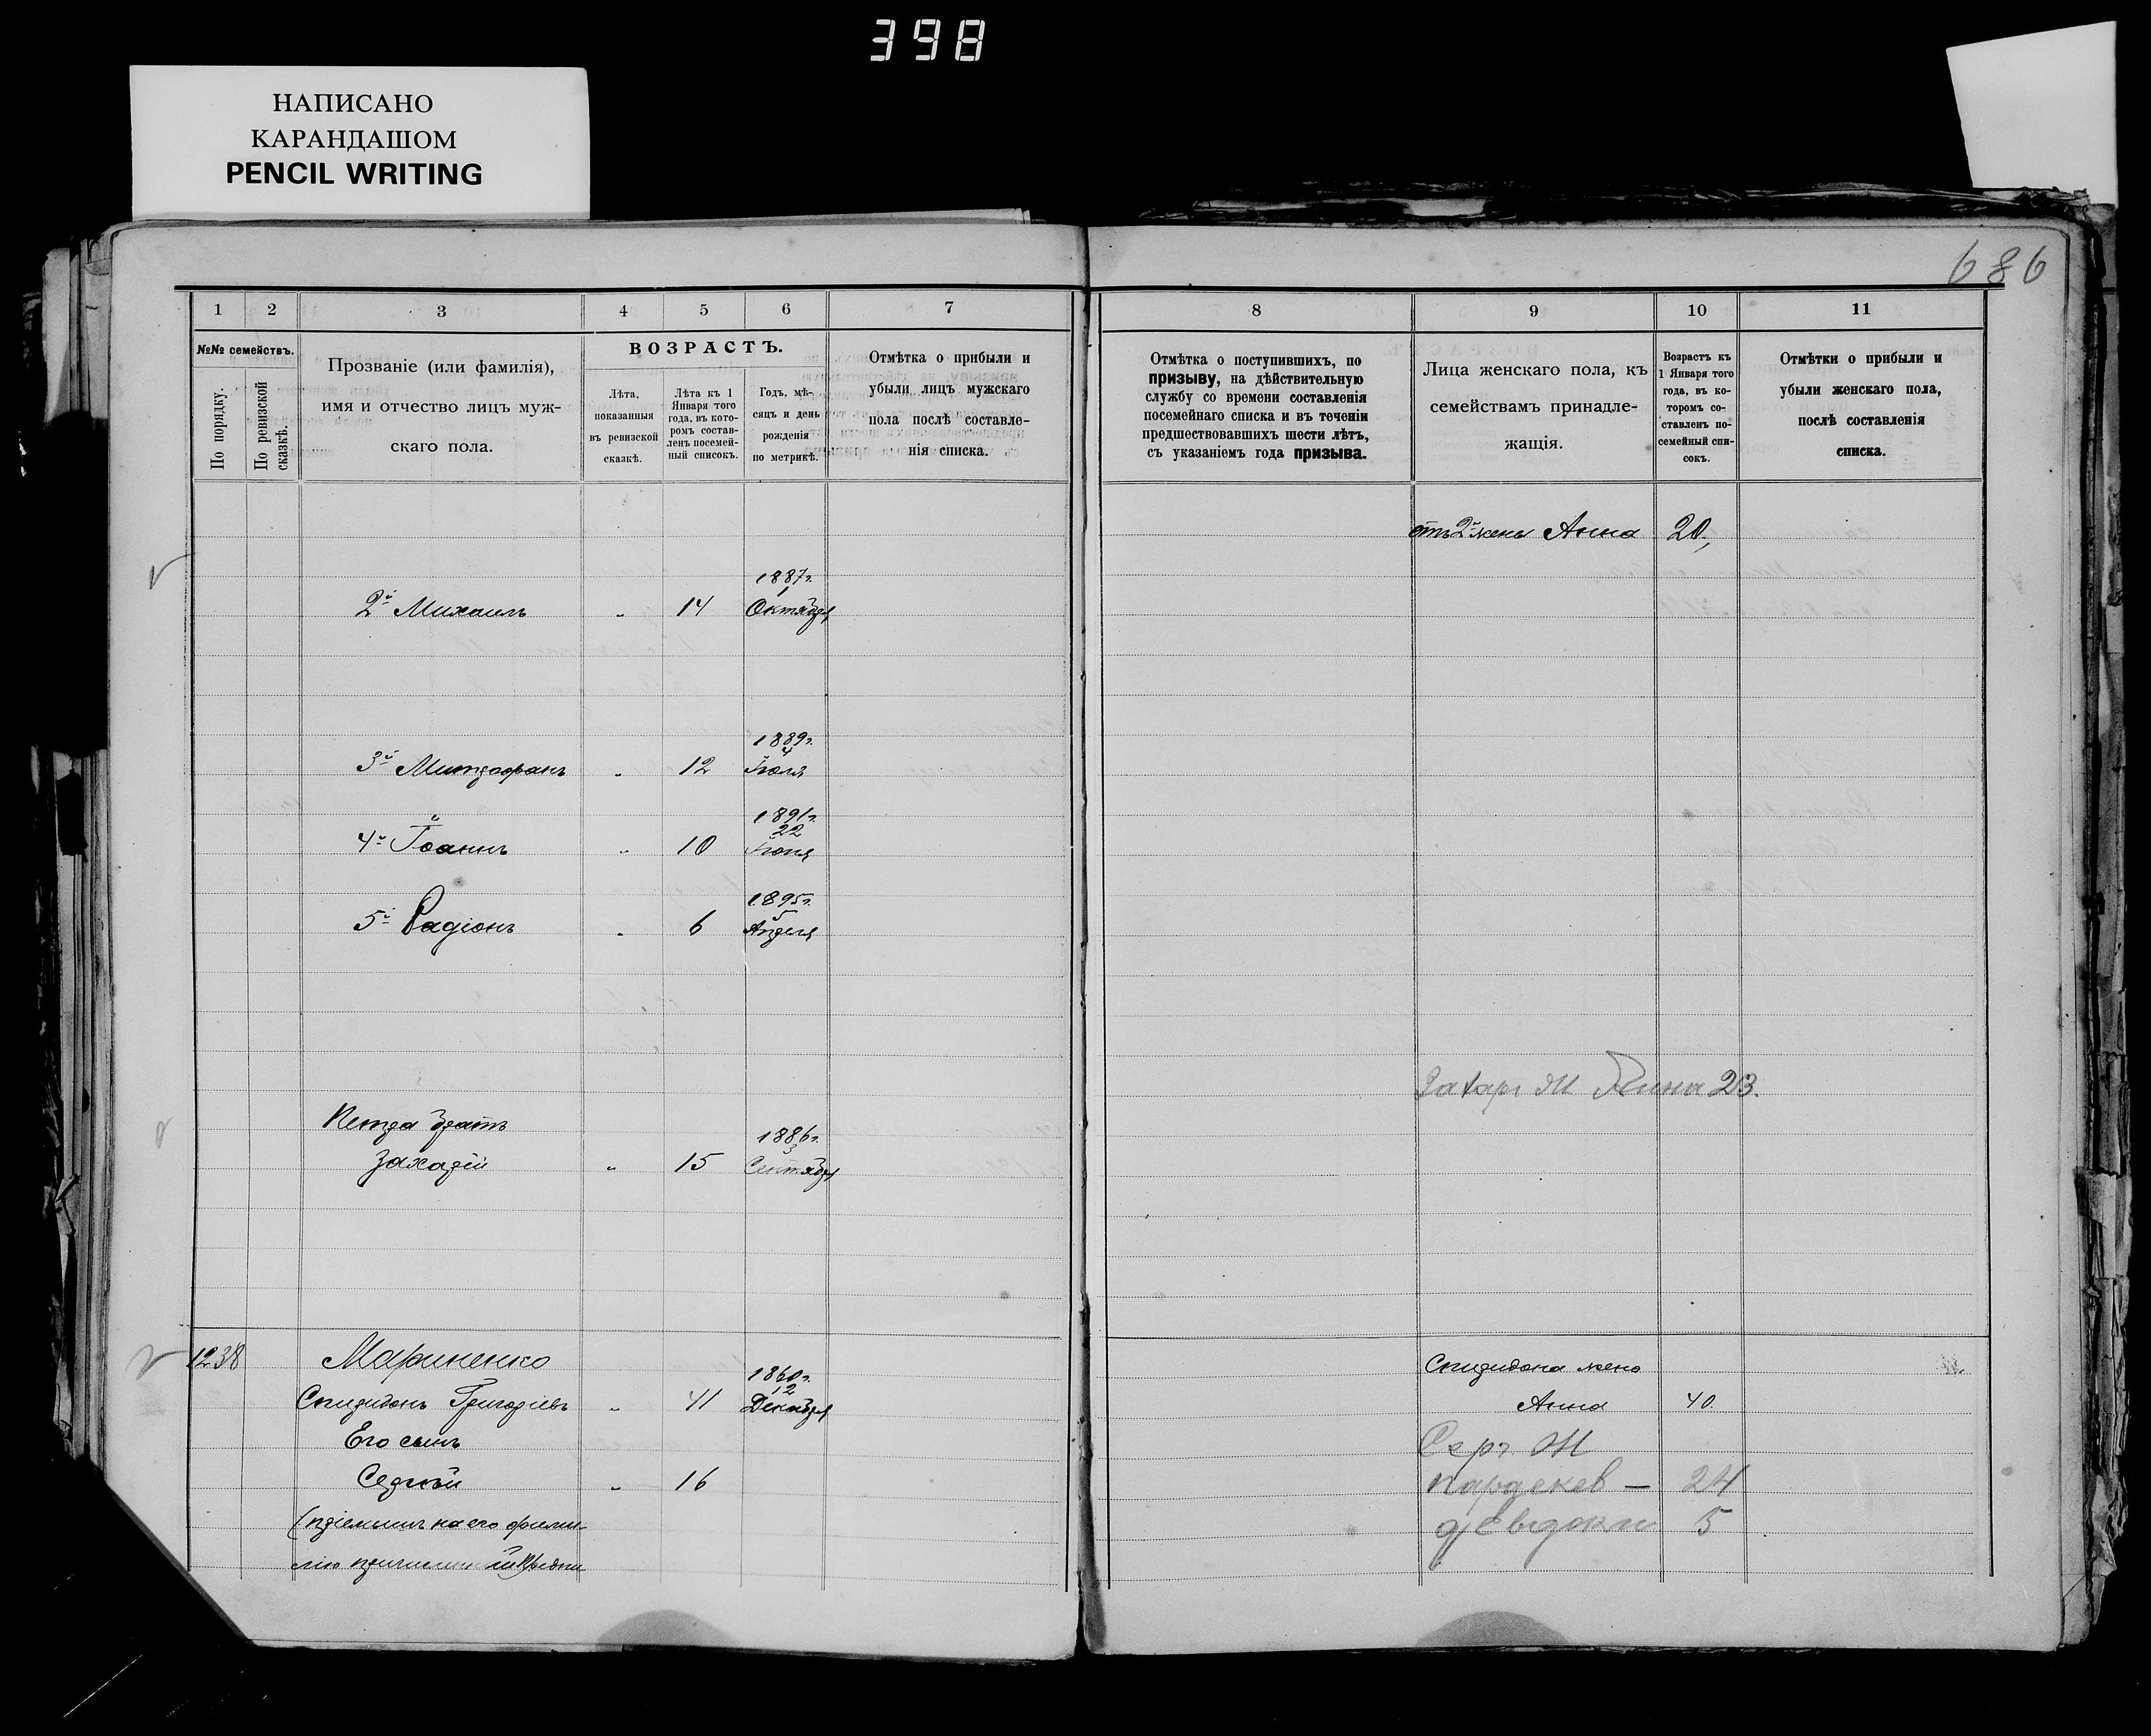 398
НАПИСАНО
КАРАНДАШОМ
PENCIL WRITING
686
1 2 3 4 5 6 7
№№ семействъ.
По порядку.
По ревизской сказкѣ.
Прозваніе (или фамилія),
имя и отчество лицъ муж-
скаго пола.
ВОЗРАСТЪ.
Лѣта,
показанныя
въ ревизской
сказкѣ.
Лѣта къ 1
Января того
года, въ кото-
ромъ состав-
ленъ посемей-
ный списокъ.
Годъ, мѣ-
сяцъ и день
рожденія
по метрикѣ.
Отмѣтка о прибыли и
убыли лицъ мужскаго
пола послѣ составле-
нія списка.
2й Михаилъ " 14 1887г. 1 Октября
3й Митрофанъ " 12 1889г. 4 Іюля
4й Іоаннъ " 10 1891г. 22 Іюня
5й Радіонъ " 6 1895г. 5 Апреля
Петра братъ
Захарій " 15 1886г. 3 Сентября
1238 Мариненко
Спиридонъ Григоріевъ " 41 1860г. 12 Декабря
Его сынъ
Сергѣй " 16
(пріемышъ на его фами-
лію
8 9 10 11
Отмѣтка о поступившихъ, по
призыву, на дѣйствительную
службу со времени составленія
посемейнаго списка и въ теченіи
предшествовавшихъ шести лѣтъ,
съ указаніемъ года призыва.
Лица женскаго пола, къ
семействамъ принадле-
жащія.
Возрастъ къ
1 Января того
года, въ ко-
торомъ со-
ставленъ по-
семейный спи-
сокъ.
Отмѣтки о прибыли и
убыли женскаго пола,
послѣ составленія
списка.
отъ 2й жены Анна 20,
Захарі Ж 23.
Спиридона жена
Анна 40.
Серг Ж
параскев — 24
д Евдоки 5